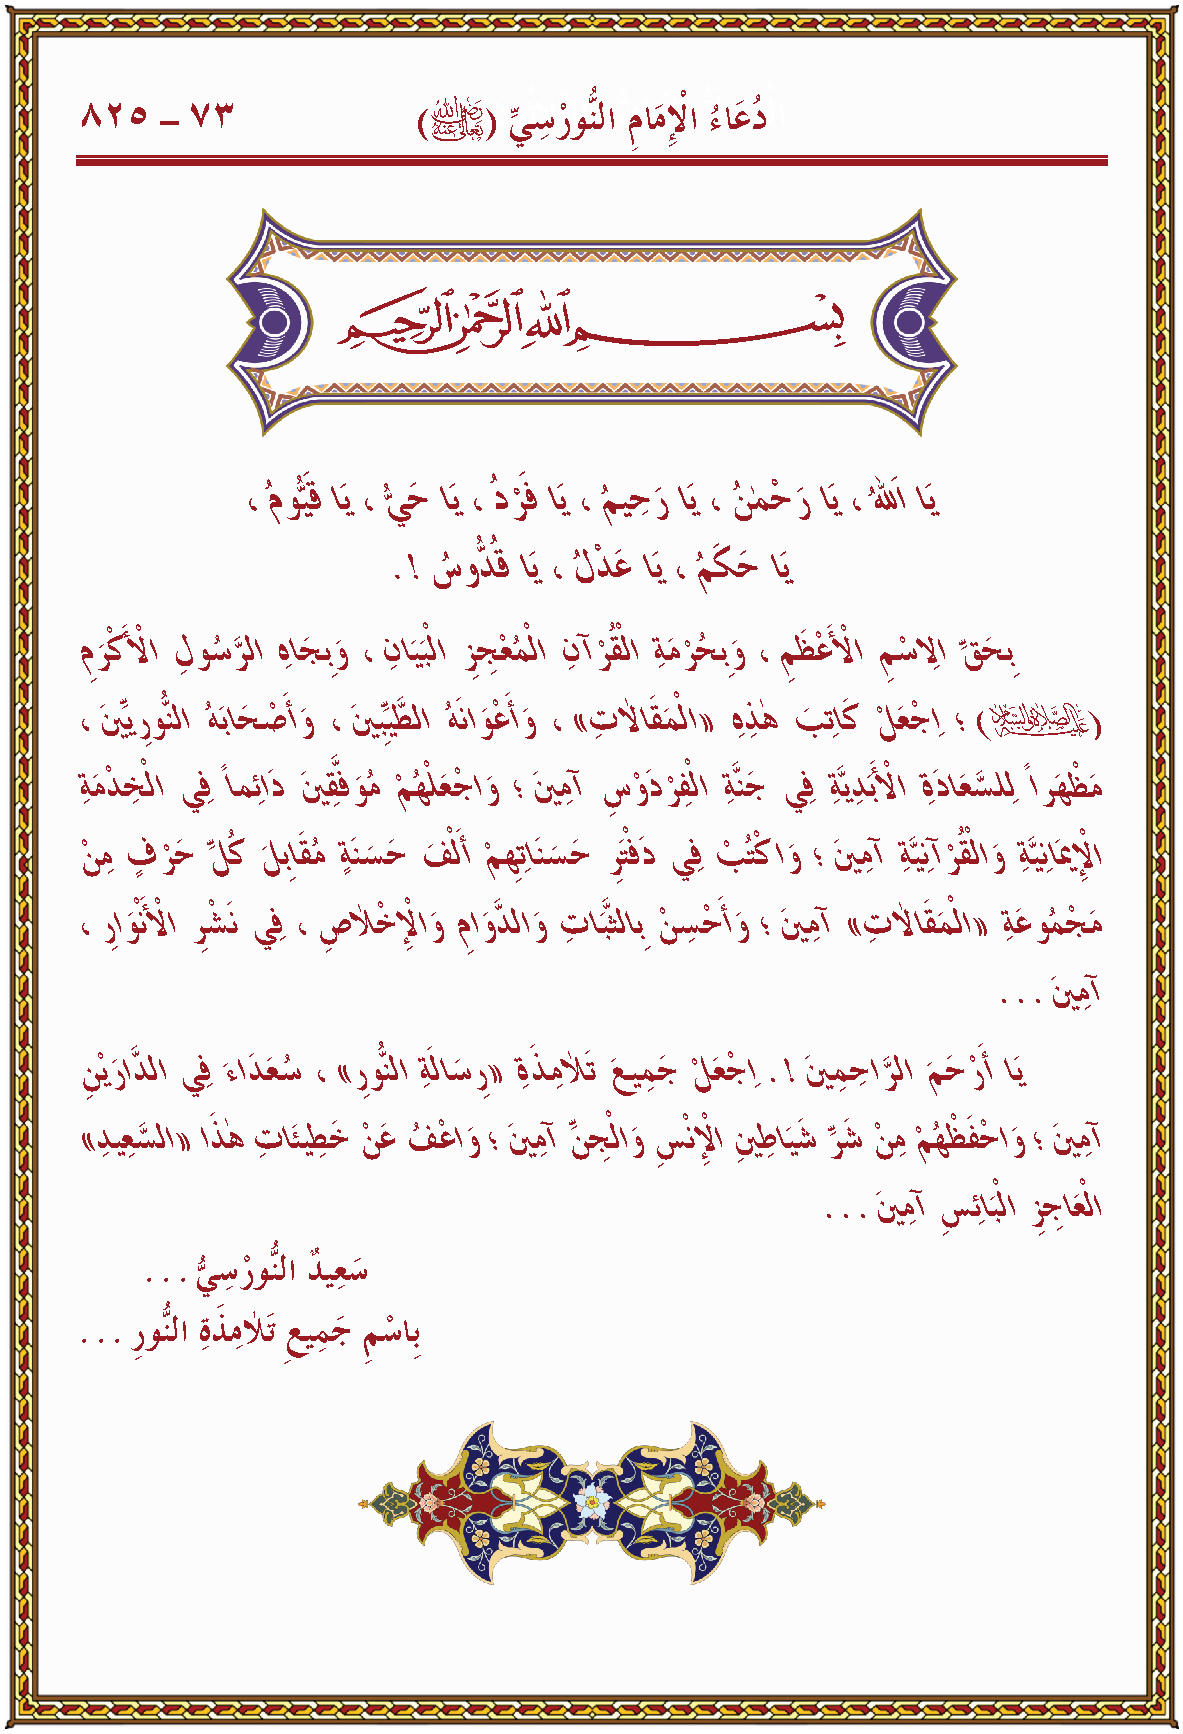 دُعَاءُ الْإِمَامِ النُّورْسِيِّ (رَضِيَ اللهُ تَعَالَى عَنْهُ) ٧٣ ــ ٨٢٥
بِسْمِ ٱللهِ ٱلرَّحْمٰنِ ٱلرَّحِيمِ
يَا اَللهُ ، يَا رَحْمٰنُ ، يَا رَحِيمُ ، يَا فَرْدُ ، يَا حَيُّ ، يَا قَيُّومُ ،
يَا حَكَمُ ، يَا عَدْلُ ، يَا قُدُّوسُ ! .
بِحَقِّ الِاسْمِ الْأَعْظَمِ ، وَبِحُرْمَةِ الْقُرْآنِ الْمُعْجِزِ الْبَيَانِ ، وَبِجَاهِ الرَّسُولِ الْأَكْرَمِ
(عَلَيْهِ الصَّلَاةُ وَالسَّلَامُ) ؛ اِجْعَلْ كَاتِبَ هٰذِهِ «الْمَقَالَاتِ» ، وَأَعْوَانَهُ الطَّيِّبِينَ ، وَأَصْحَابَهُ النُّورِيِّينَ ،
مَظْهَراً لِلسَّعَادَةِ الْأَبَدِيَّةِ فِي جَنَّةِ الْفِرْدَوْسِ آمِينَ ؛ وَاجْعَلْهُمْ مُوَفَّقِينَ دَائِماً فِي الْخِدْمَةِ
الْإِيمَانِيَّةِ وَالْقُرْآنِيَّةِ آمِينَ ؛ وَاكْتُبْ فِي دَفْتَرِ حَسَنَاتِهِمْ أَلْفَ حَسَنَةٍ مُقَابِلَ كُلِّ حَرْفٍ مِنْ
مَجْمُوعَةِ «الْمَقَالَاتِ» آمِينَ ؛ وَأَحْسِنْ بِالثَّبَاتِ وَالدَّوَامِ وَالْإِخْلَاصِ ، فِي نَشْرِ الْأَنْوَارِ ،
آمِينَ . . .
يَا أَرْحَمَ الرَّاحِمِينَ ! . اِجْعَلْ جَمِيعَ تَلَامِذَةِ «رِسَالَةِ النُّورِ» ، سُعَدَاءَ فِي الدَّارَيْنِ
آمِينَ ؛ وَاحْفَظْهُمْ مِنْ شَرِّ شَيَاطِينِ الْإِنْسِ وَالْجِنِّ آمِينَ ؛ وَاعْفُ عَنْ خَطِيئَاتِ هٰذَا «السَّعِيدِ»
الْعَاجِزِ الْبَائِسِ آمِينَ . . .
سَعِيدٌ النُّورْسِيُّ . . .
بِاسْمِ جَمِيعِ تَلَامِذَةِ النُّورِ . . .